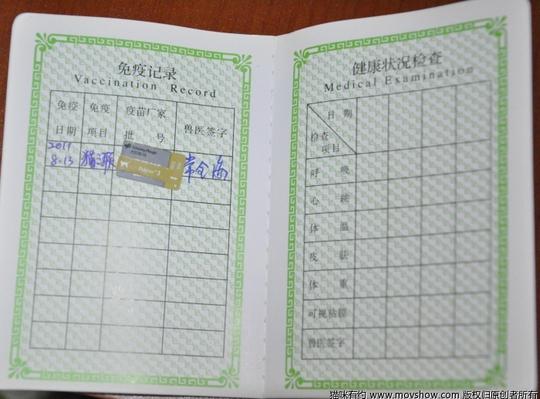 免疫记录
Vaccination Record
免疫 免疫 疫苗厂家 兽医签字
日期 项目 批 号
2011
8.13 猫三联
健康状况检查
Medical Examination
日 期
检查
项目
呼 吸
心 跳
体 温
皮 肤
体 重
可视粘膜
兽医签字
猫咪有约 www.movshow.com 版权归原创者所有